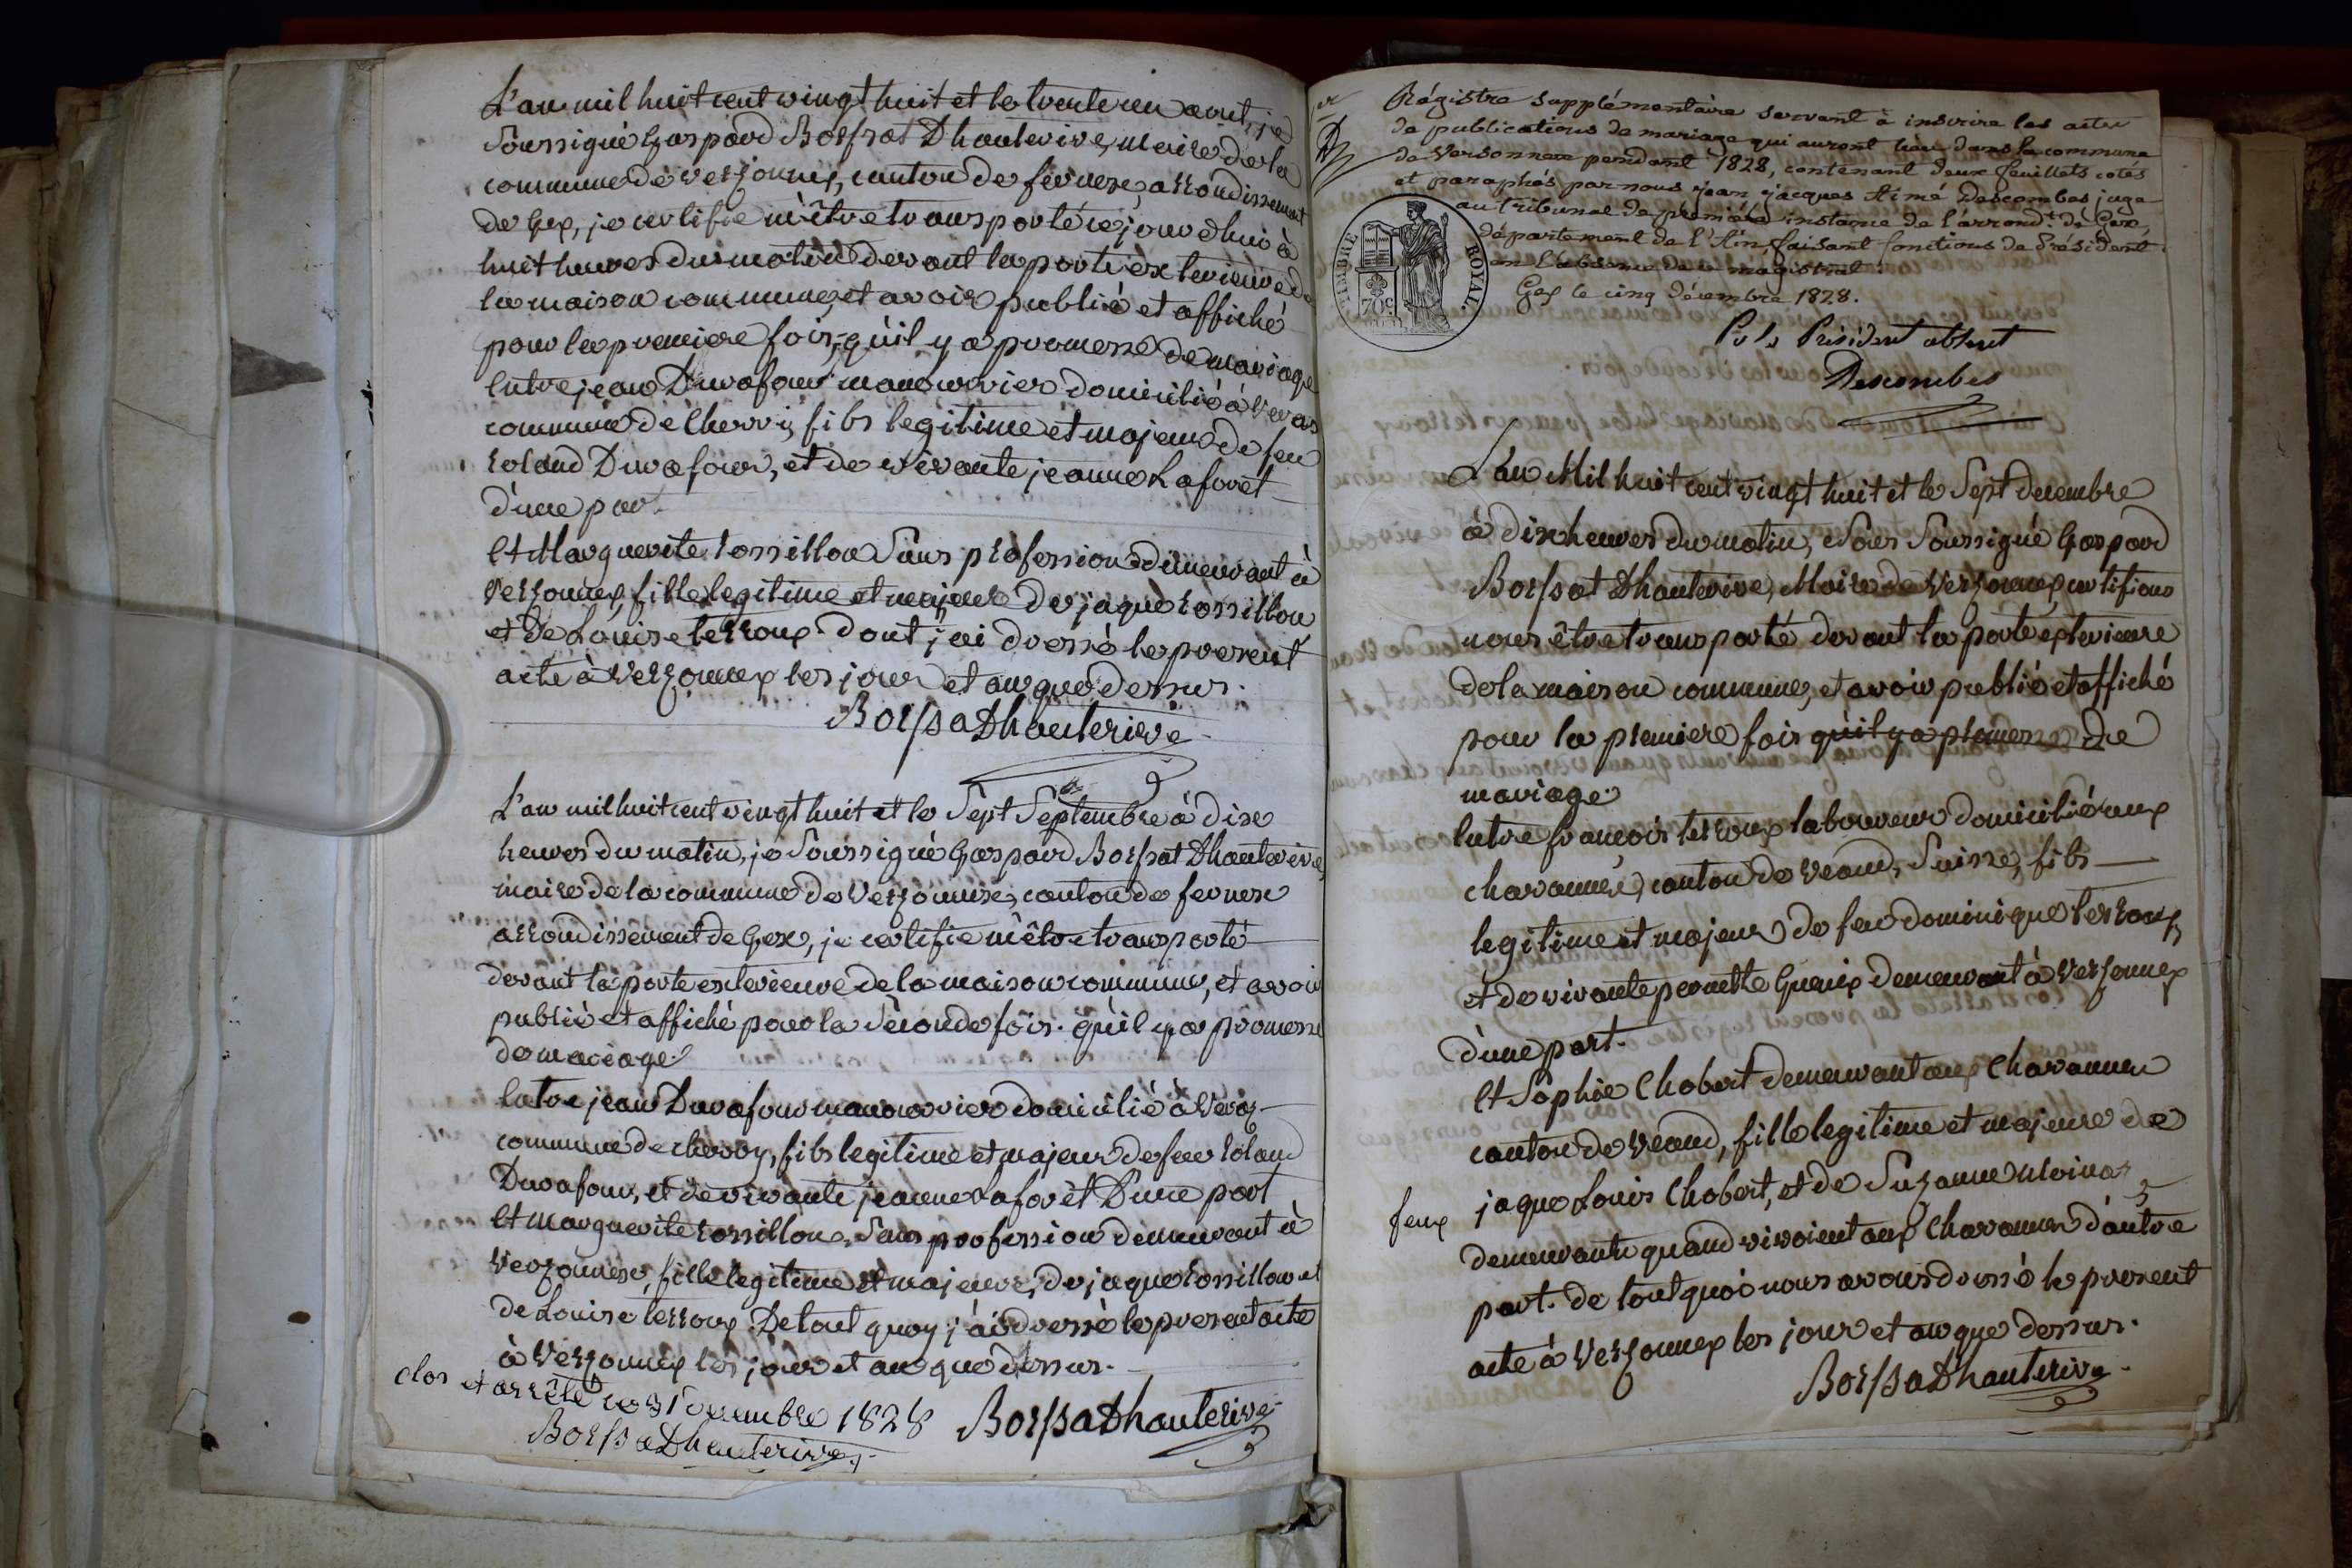 L'an mil huit cent vingt huit et le trente un aout, je
soussigné Gaspard Borssat Dhauterive, maire de la
commune de Versonnex, canton de fernex, arrondissement
de Gex, je certifie m'être transporté ce jourdhui à
huit heures du matin devant la porte exterieure de
la maison commune, et avoir publié et affiché
pour la premiere fois, qu'il y a promesse de mariage
Entre jean Duvafour manouvrier domicilié à Veras
commune de Chevry, fils legitime et majeur de feu
roland Duvafour, et de vivante jeanne Laforêt
d'une part.
Et Marguerite rossillon Sans profession demeurant à
Versonnex, fille legitime et majeure de jaque rossillon
et de Louise terroux. dont j'ai dressé le present
acte à Versonnex les jour et an que dessus.
BorssaDhauterive
L'an mil huit cent vingt huit et le Sept Septembre à dix
heures du matin, je Soussigné Gaspard Borssat Dhauterive,
maire de la commune de Versonnex, canton de fernex
arrondissement de Gex, je certifie m'être transporté
devant la porte exterieure de la maison commune, et avoir
publié et affiché pour la seconde fois. qu'il y a promesse
de mariage.
Entre jean Duvafour manouvrier domicilié à Veraz
commune de chevry, fils legitime et majeur de feu roland
Duvafour, et de vivante jeanne Laforêt D'une part
Et marguerite rossillon, Sans profession demeurant à
Versonnex, fille legitime et majeure, de jaque rossillon et
de Louise terroux. De tout quoy j'ai dressé le present acte
à Versonnex les jour et an que dessus.
clos et arrêté ce 31 decembre 1828 BorssaDhauterive
BorssaDhauterive
Régistre supplémentaire servant à inscrire les actes
de publications de mariage qui auront lieu dans la commune
de Versonnex pendant 1828, contenant deux feuillets cotés
et paraphés par nous jean jacques Aimé Descombes juge
au tribunal de première instance de l'arrondt. de Gex,
département de l'Ain, faisant fonctions de Président
en l'absence de ce magistrat.
Gex le cinq décembre 1828.
TIMBRE ROYAL
70c
Pr le Président absent
Descombes
L'an Mil huit cent vingt huit et le Sept decembre
à dix heures du matin, Nous Soussigné Gaspard
Borssat Dhauterive, Maire de Versonnex certifions
nous être transporté devant la porte exterieure
de la maison commune, et avoir publié et affiché
pour la premiere fois qu'il y a promesse de
mariage.
Entre françois terroux laboureur domicilié aux
chavannes, canton de Veaud, Suisse, fils
legitime et majeur de feu dominique terroux,
et de vivante pernette Gueux demeurant à Versonnex
d'une part.
Et Sophie Chobert demeurant aux Chavannes
canton de Veaud, fille legitime et majeure de
feux jaque Louis Chobert, et de Suzanne moinas
demeurants quand vivoient aux Chavannes d'autre
part. de tout quoi nous avons dressé le present
acte à Versonnex les jour et an que dessus.
BorssaDhauterive